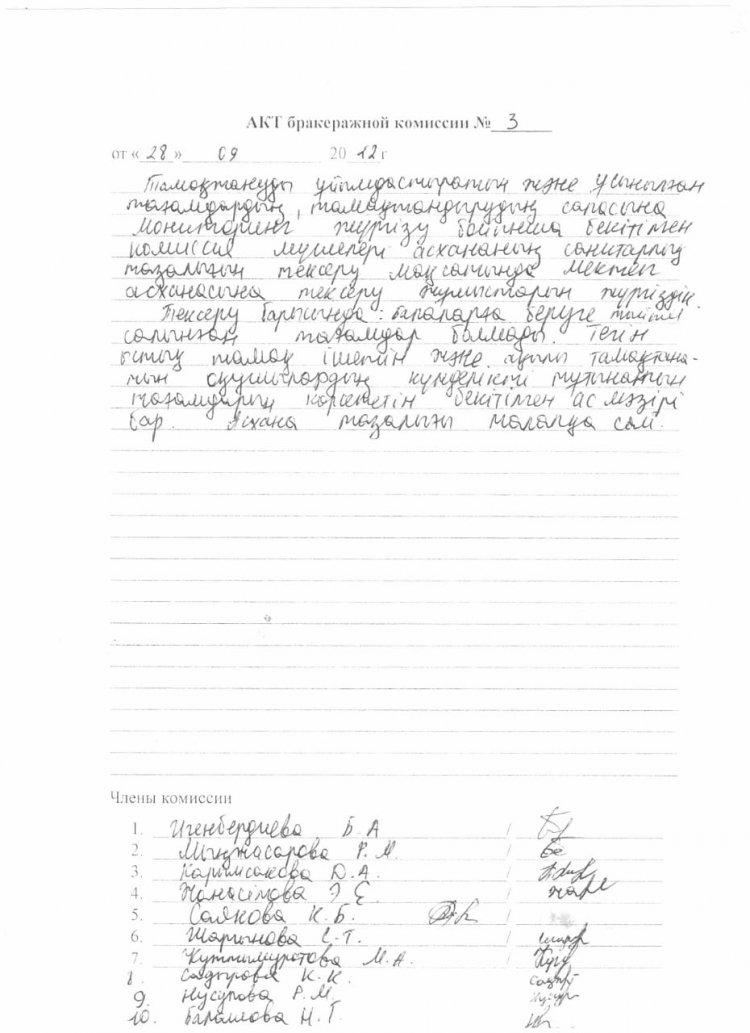 АКТ бракеражной комиссии № 3
от « 28 » 09 2012 г
Тамақтануды ұйымдастыратын және ұсынылған
тағамдардың, тамақтандырудың сапасына
мониторинг жүргізу бойынша бекітілген
комиссия мүшелері асхананың санитарлық
тазалығын тексеру мақсатында мектеп
асханасына тексеру жұмыстарын жүргіздік.
Тексеру барысында: балаларға беруге тыйым
салынған тағамдар болмады. Тегін
ыстық тамақ ішетін және ақылы тамақтана-
тын оқушылардың күнделікті тұтынатын
тағамдарын көрсететін бекітілген ас мәзірі
бар. Асхана тазалығы талапқа сай.
Члены комиссии
1. Игенбердиева Б.А /
2. Мыңжасарова Р.М. /
3. Каримсакова Ю.А. /
4. Жанасілова Э Е /
5. Саякова К.Б. /
6. Шарынова С.Т. /
7. Кутлымуротова М.А. /
8. Садырова К.К.
9. Нусупова Р.М
10. Бапашова Н.Г.